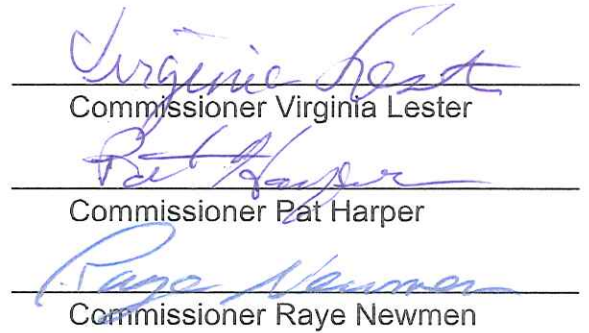 Virginia Lest
Commissioner Virginia Lester
Pat Harper
Commissioner Pat Harper
Raye Newmen
Commissioner Raye Newmen